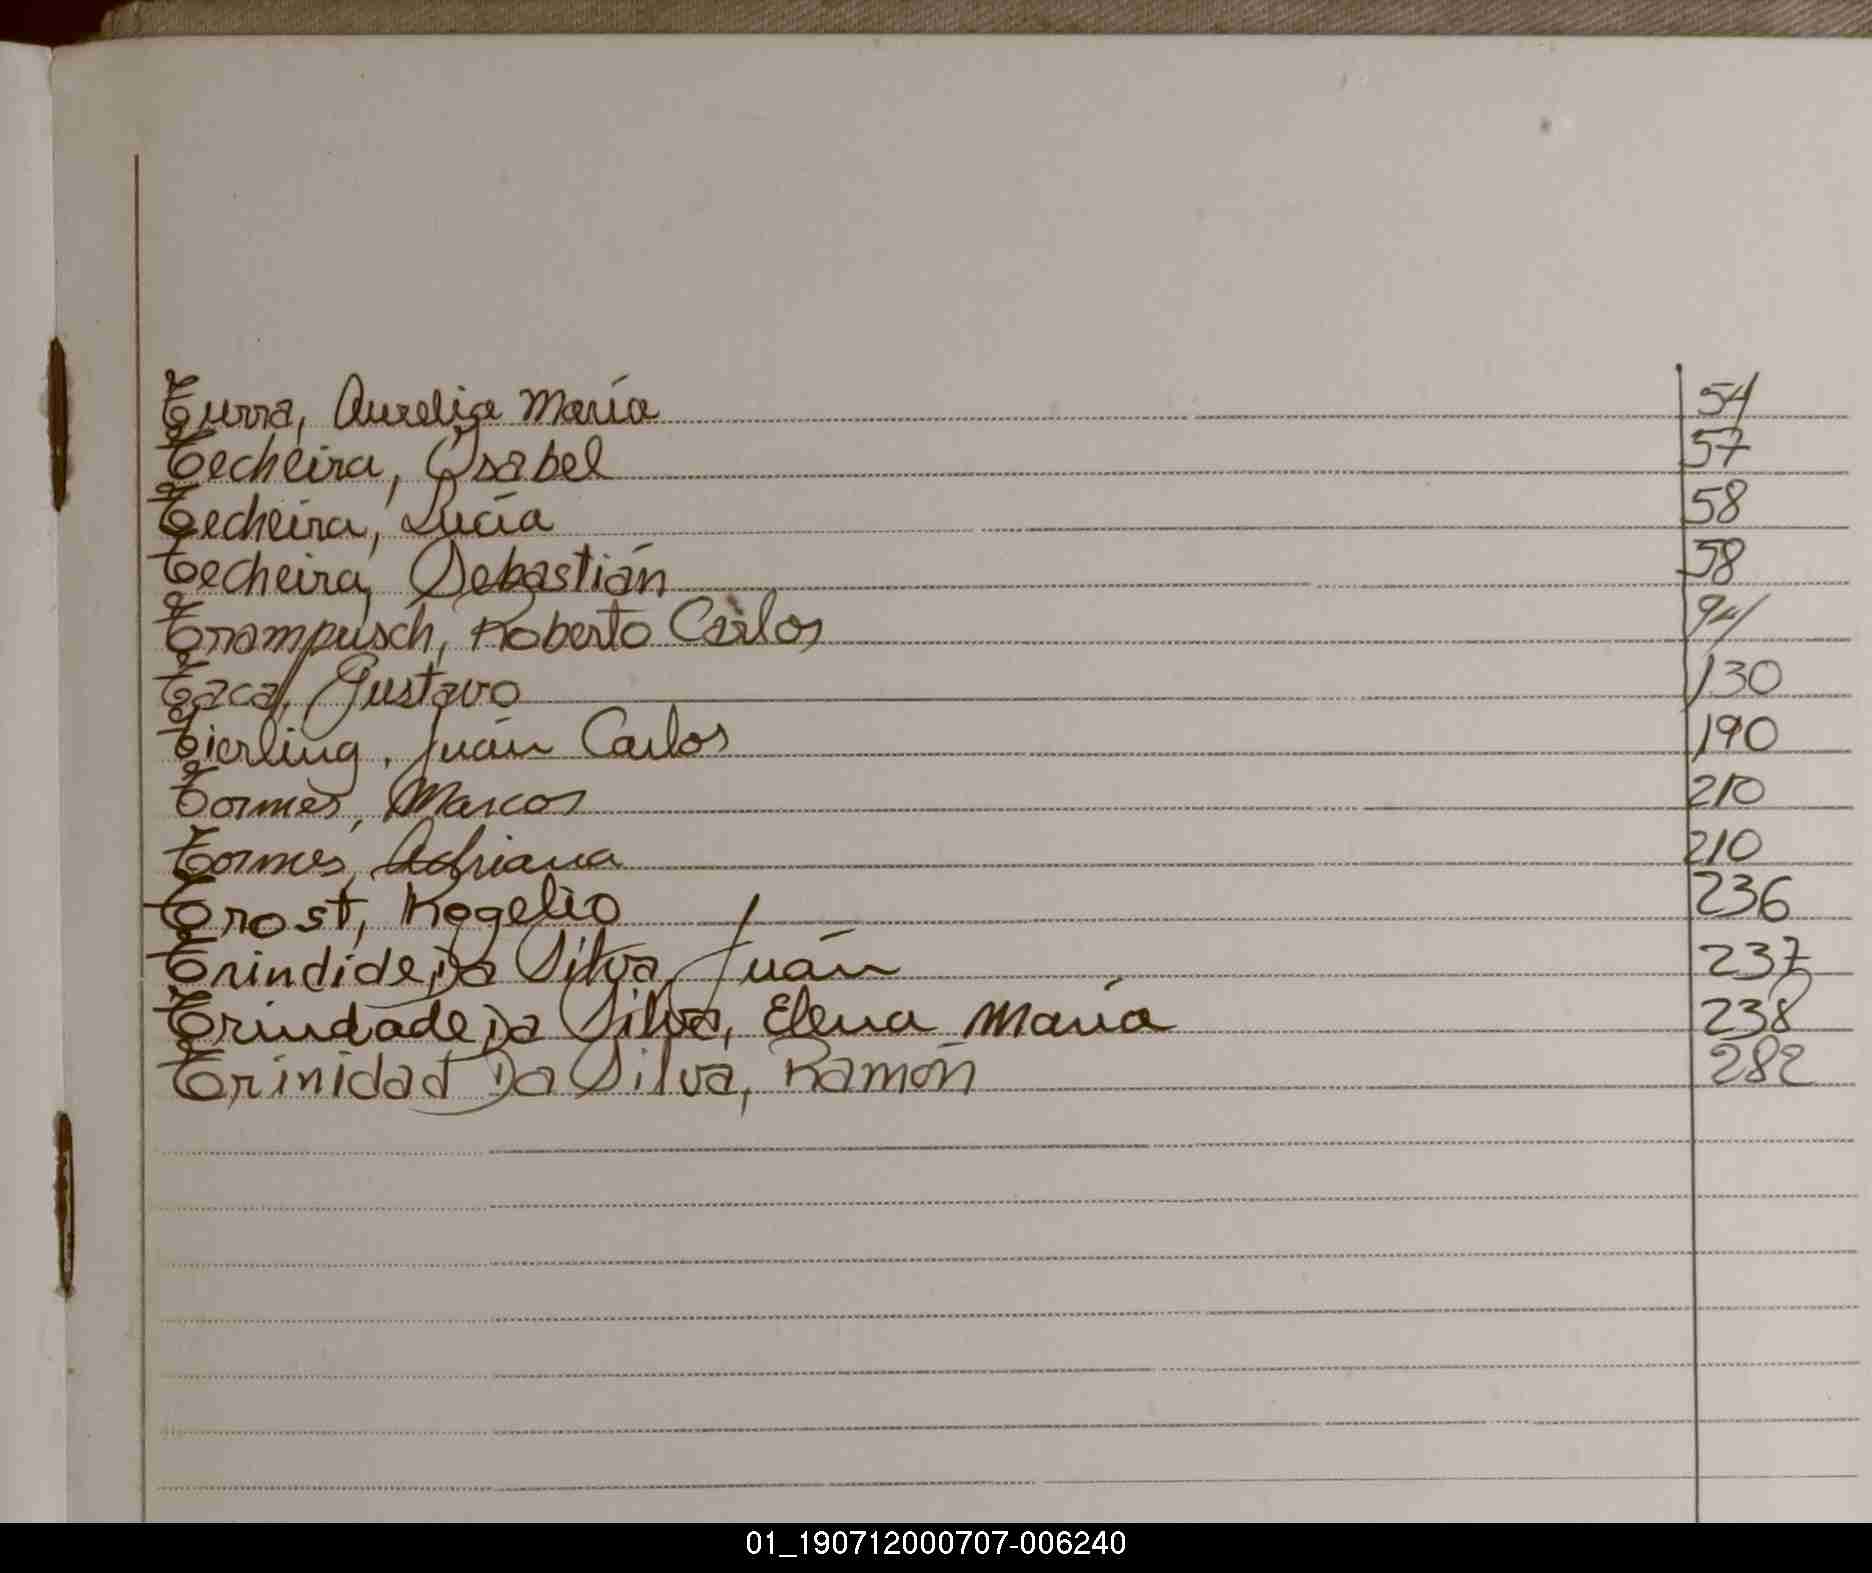 Turra, Aurelia María 54
Techeira, Isabel 57
Techeira, Lucía 58
Techeira, Sebastián 58
Trampusch, Roberto Carlos 94
Taca, Gustavo 130
Tierling, Juán Carlos 190
Tormes, Marcos 210
Tormes, Adriana 210
Trost, Rogelio 236
Trindide Da Silva, Juán 237
Trindade Da Silva, Elena María 238
Trinidad Da Silva, Ramón 282
01_190712000707-006240